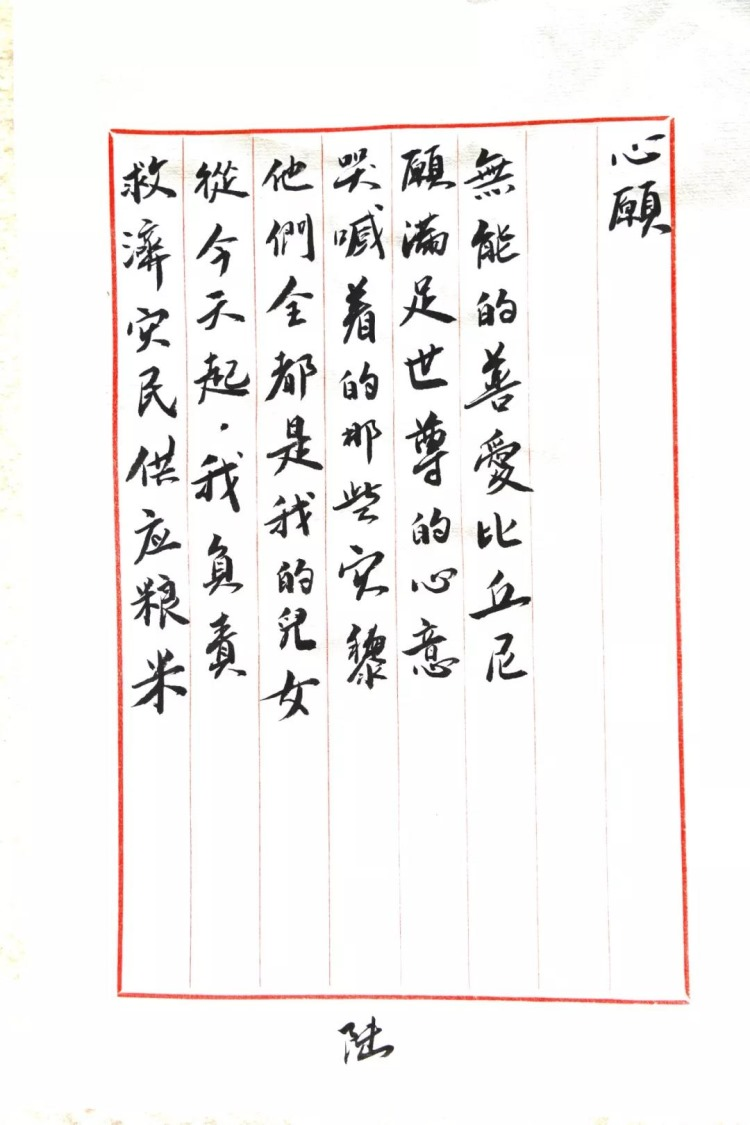 心願
無能的善愛比丘尼
願滿足世尊的心意
哭喊着的那些灾黎
他們全都是我的兒女
從今天起，我負責
救濟灾民供应粮米
陆